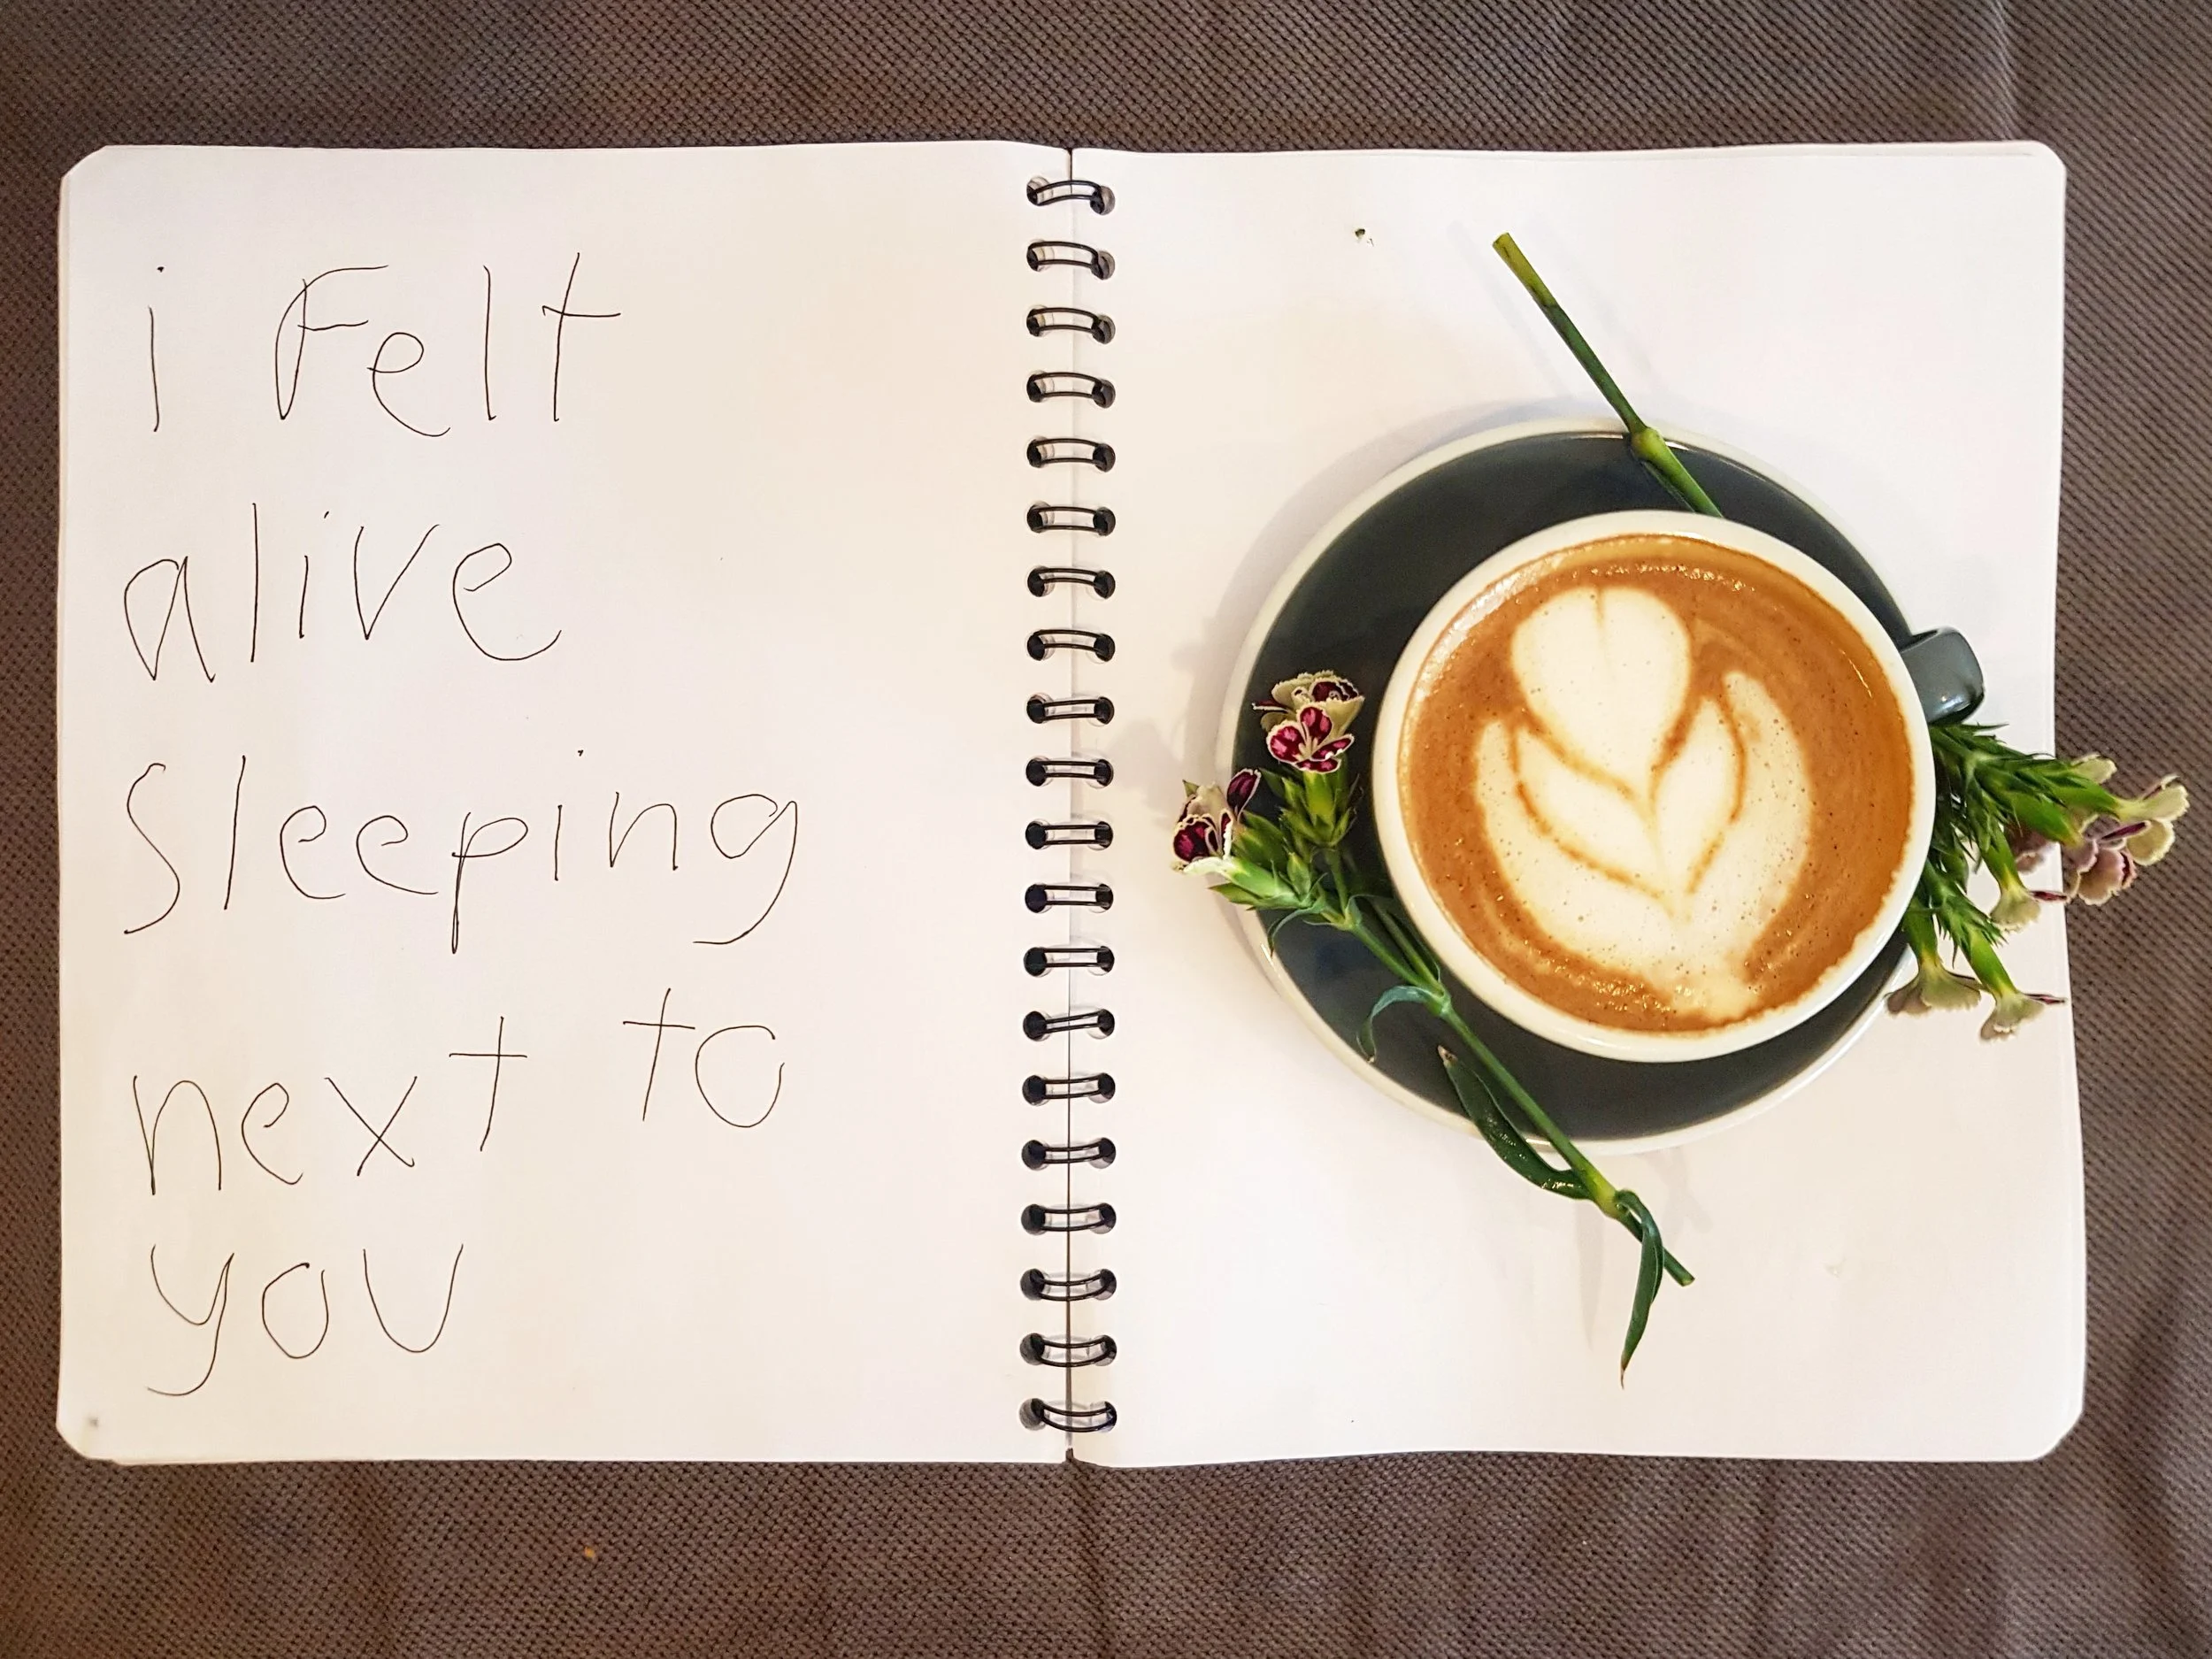 i Felt
alive
Sleeping
next to
you